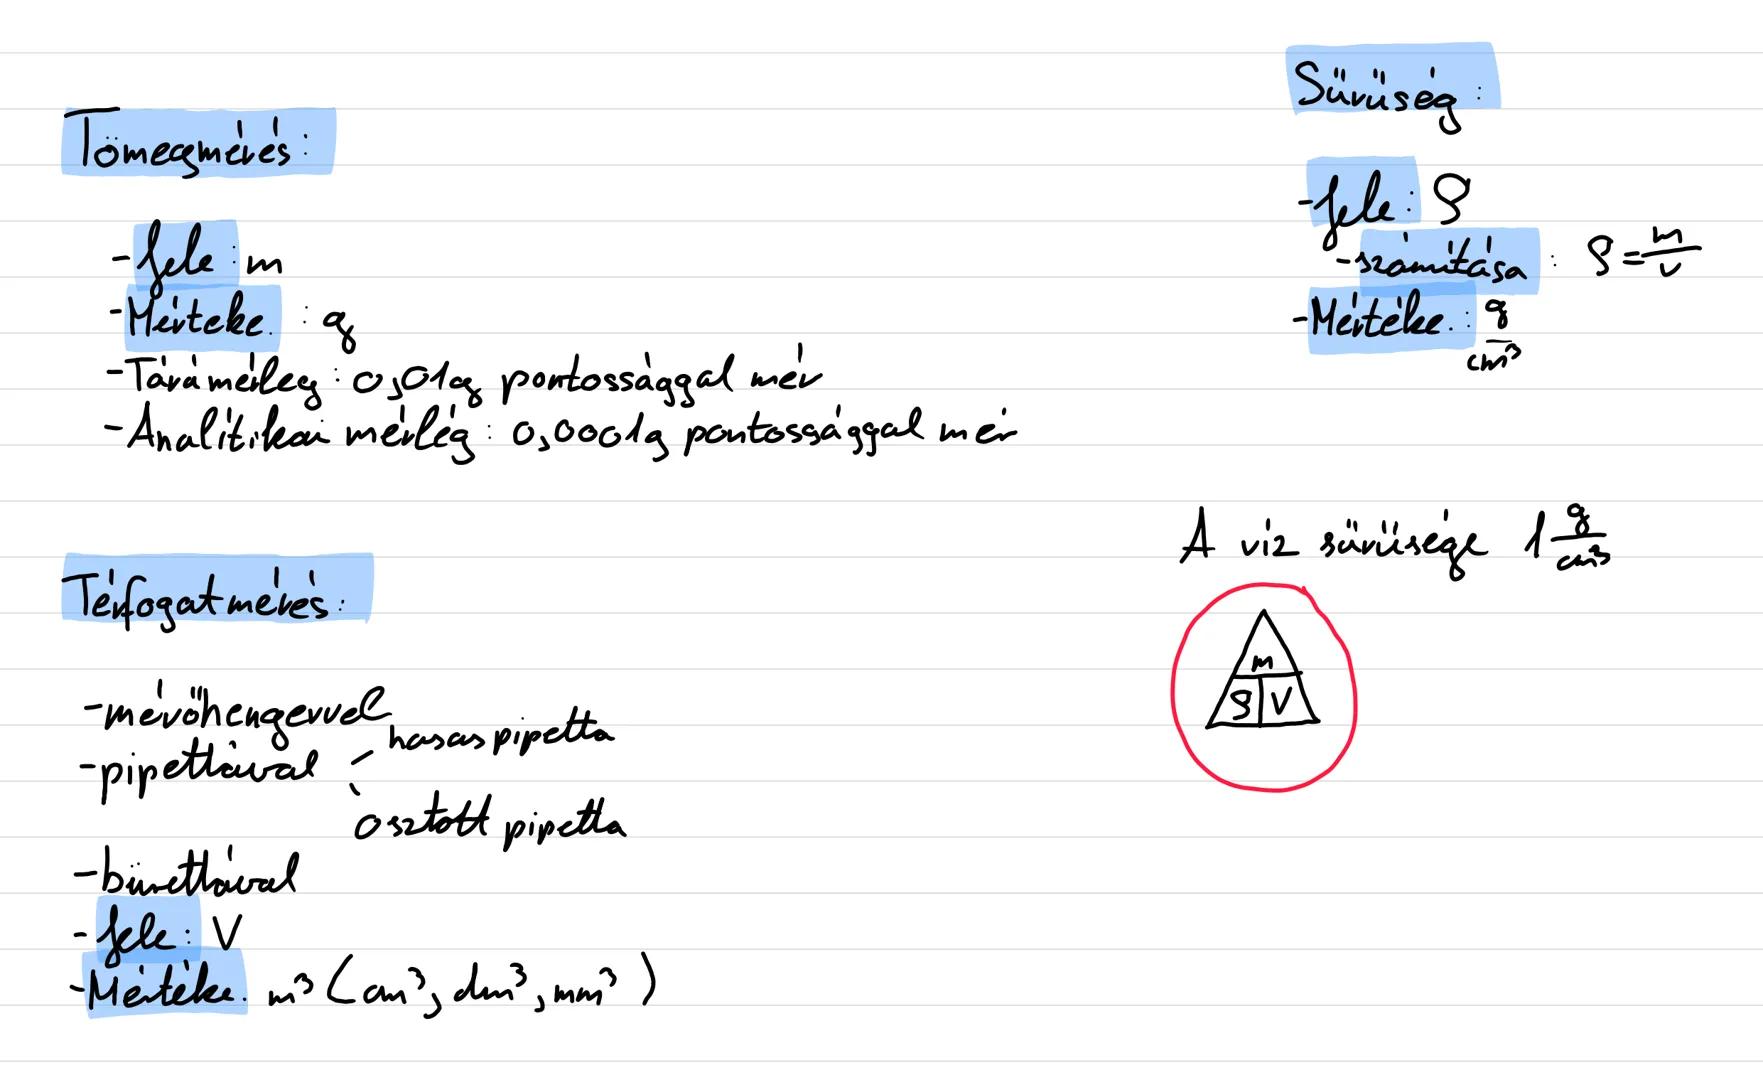 Tömegmérés:
-Jele: m
-Mértéke: g
-Táramérleg: 0,01g pontossággal mér
-Analitikai mérleg: 0,0001g pontossággal mér
Térfogatmérés:
-mérőhengerrel
-pipettával
hasas pipetta
osztott pipetta
-bürettával
-Jele: V
-Mértéke: m³ (cm³, dm³, mm³)
Sűrűség:
-Jele: ρ
-számítása: ρ = m/v
-Mértéke: g/cm³
A víz sűrűsége 1 g/cm³
m
ρ V